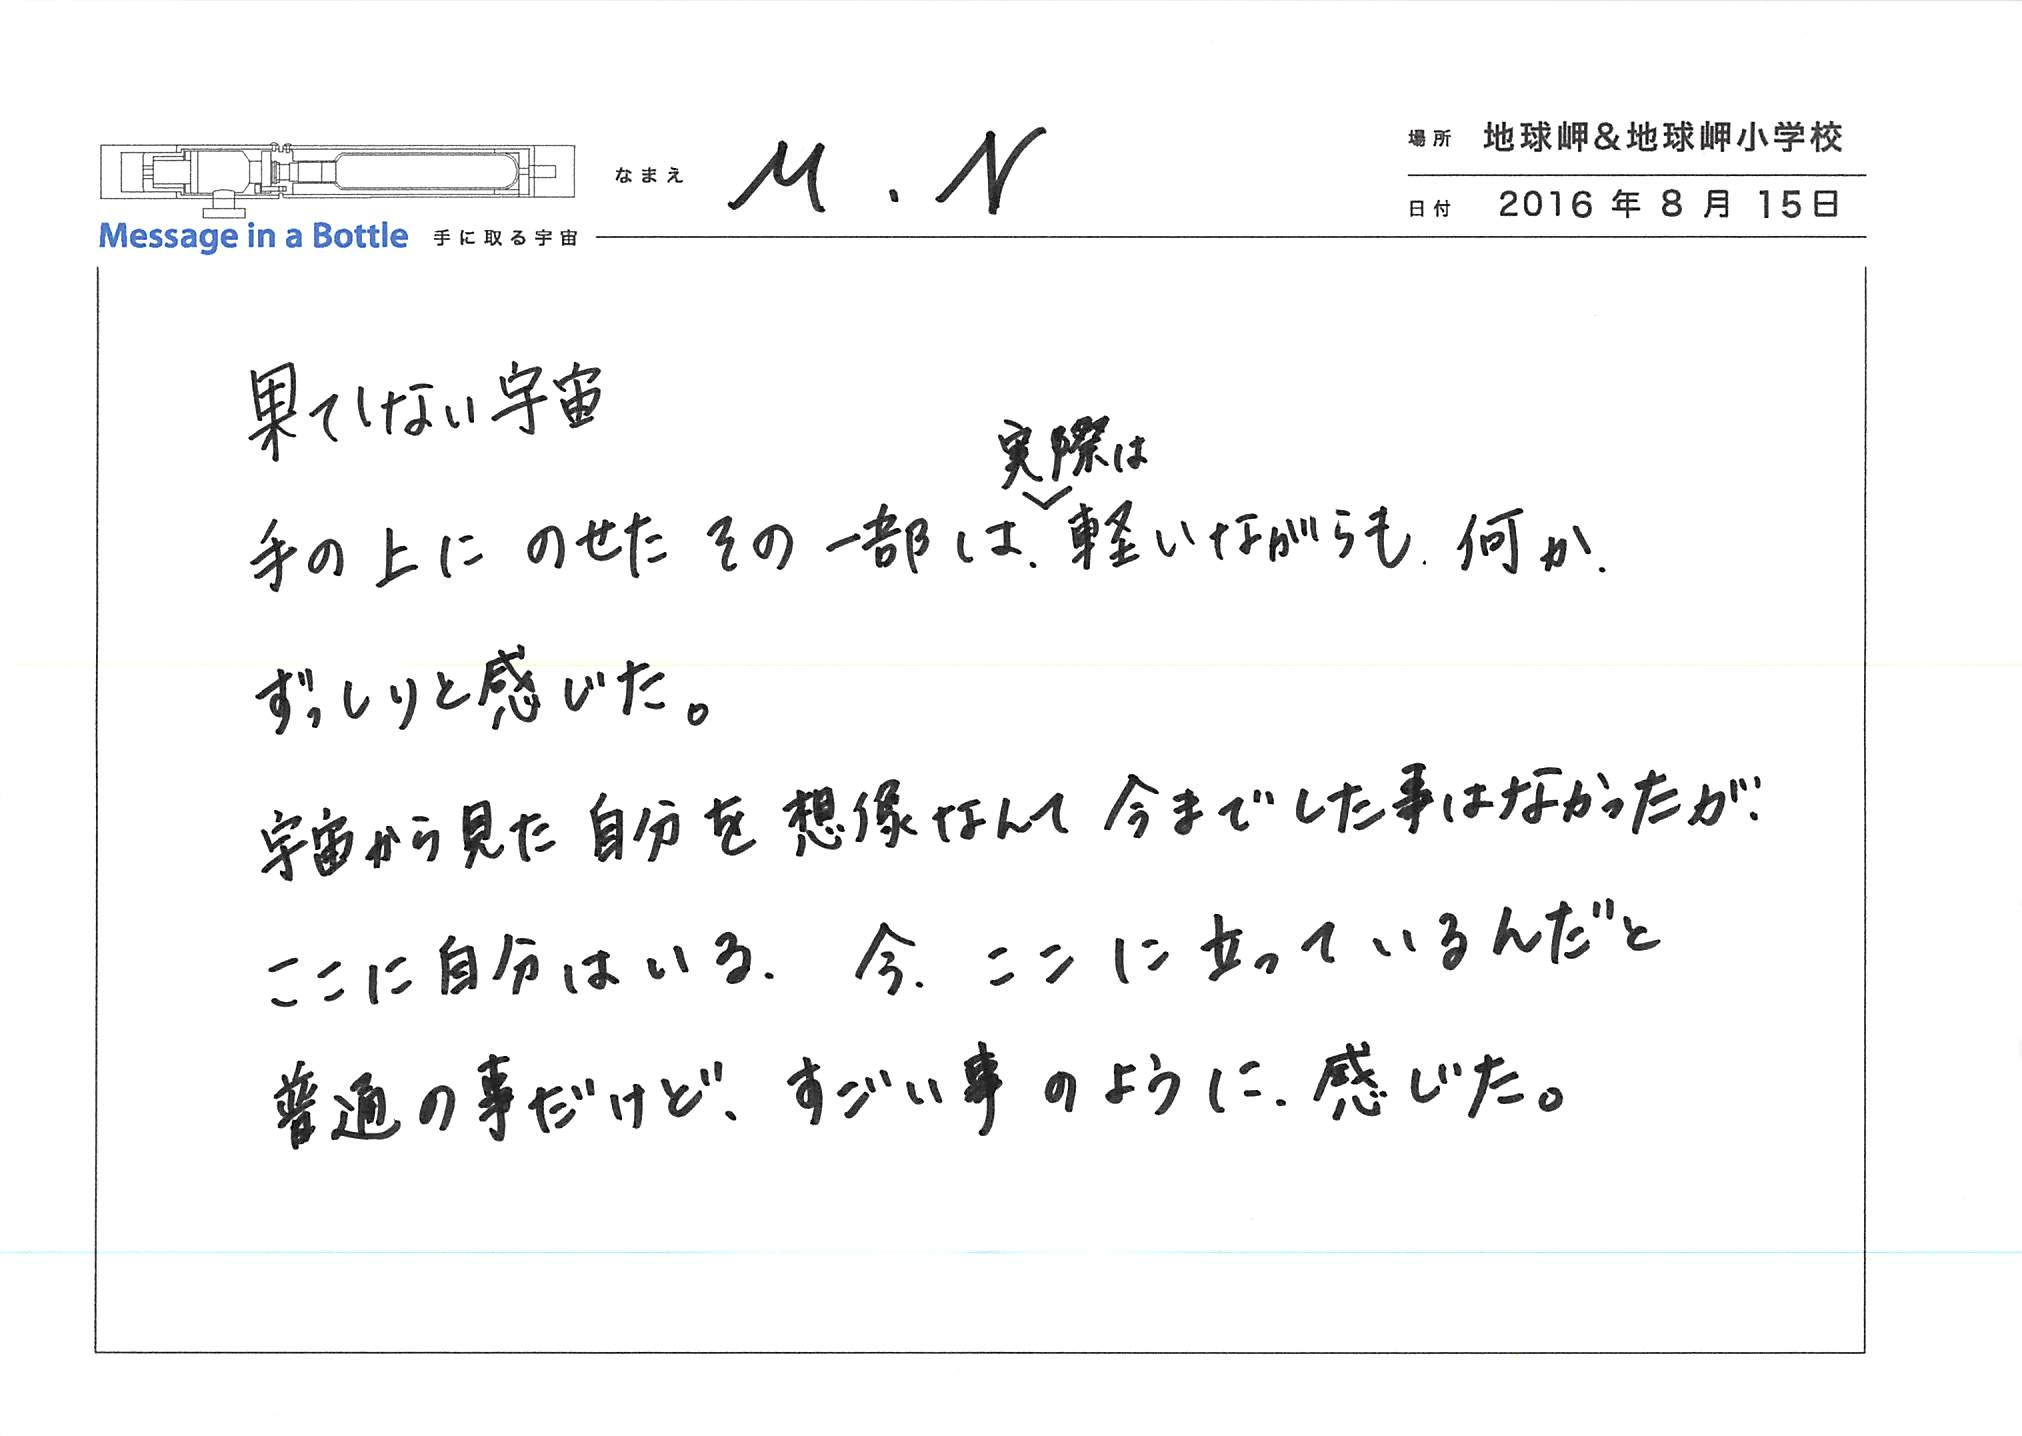 場所 地球岬&地球岬小学校
なまえ M.N
日付 2016年8月15日
Message in a Bottle 手に取る宇宙
果てしない宇宙
実際は
手の上に のせた その一部は、軽いながらも、何か、
ずっしりと感じた。
宇宙から見た 自分を 想像なんて 今までした事はなかったが、
ここに自分はいる、 今、ここに立っているんだと
普通の事だけど、すごい事のように、感じた。